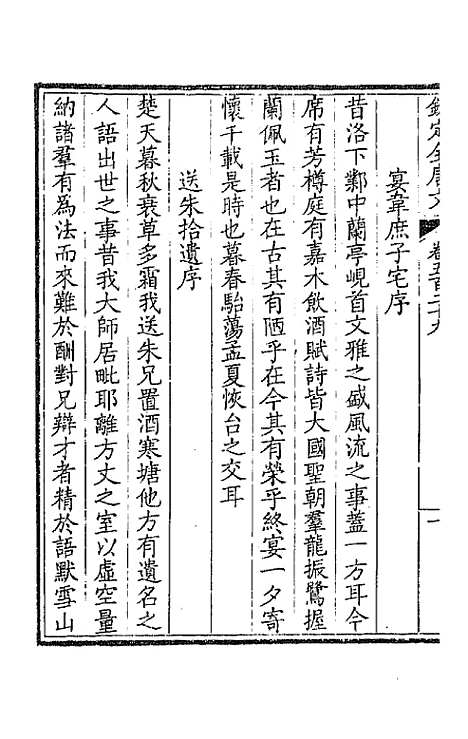 欽定全唐文 卷五百二十九 一
宴韋庶子宅序
昔洛下鄴中蘭亭峴首文雅之盛風流之事蓋一方耳今
席有芳樽庭有嘉木飲酒賦詩皆大國聖朝羣龍振鷺握
蘭佩玉者也在古其有陋乎在今其有榮乎終宴一夕寄
懷千載是時也暮春駘蕩孟夏恢台之交耳
送朱拾遺序
楚天暮秋衰草多霜我送朱兄置酒寒塘他方有遺名之
人語出世之事昔我大師居毗耶離方丈之室以虛空量
納諸羣有為法而來難於酬對兄辯才者精於語默雪山